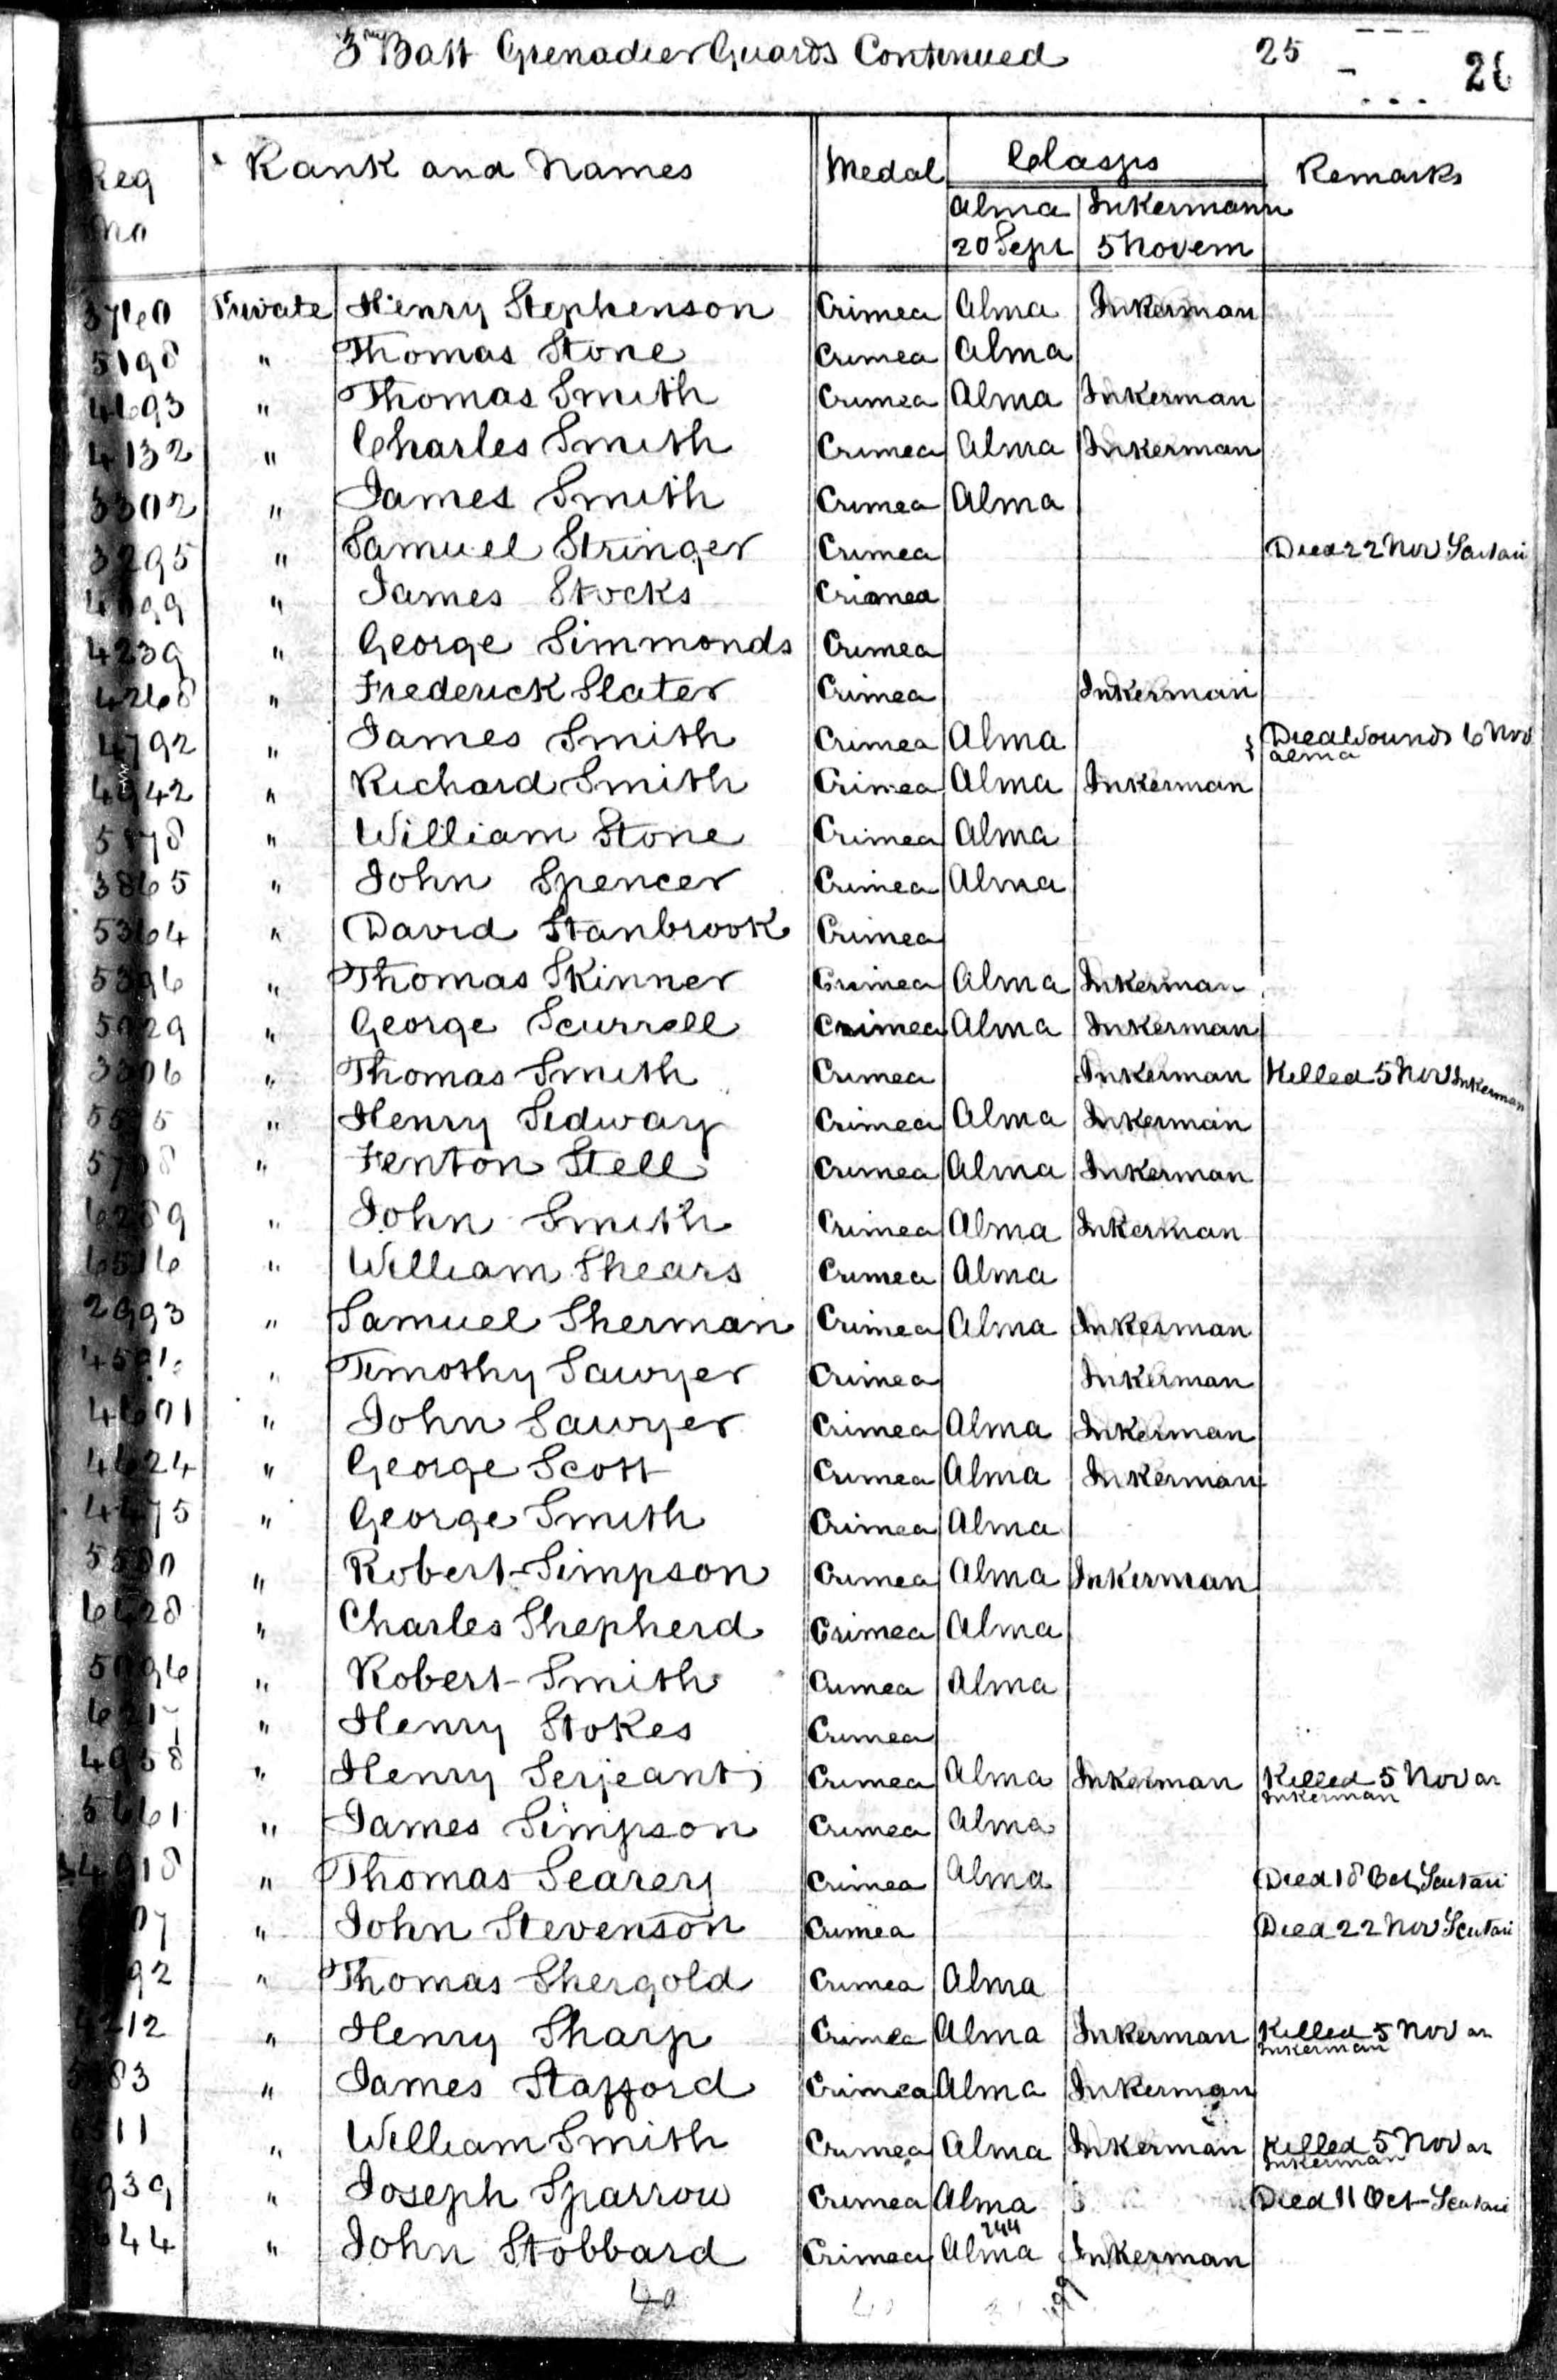 3rd Batt Grenadier Guards Continued 25 26
Reg No Rank and Names Medal Clasps Remarks
Alma Inkermann
20 Sept 5 Novem
3760 Private Henry Stephenson Crimea Alma Inkerman
5198 " Thomas Stone Crimea Alma
4693 " Thomas Smith Crimea Alma Inkerman
4132 " Charles Smith Crimea Alma Inkerman
3302 " James Smith Crimea Alma
3295 " Samuel Stringer Crimea Died 22 Nov Scutari
" James Stocks Crimea
4239 " George Simmonds Crimea
4268 " Frederick Slater Crimea Inkerman
4792 " James Smith Crimea Alma } Died Wounds 6 Nov
Alma
4942 " Richard Smith Crimea Alma Inkerman
" William Stone Crimea Alma
3865 " John Spencer Crimea Alma
5364 " David Stanbrook Crimea
5396 " Thomas Skinner Crimea Alma Inkerman
5029 " George Scurrell Crimea Alma Inkerman
3306 " Thomas Smith Crimea Inkerman Killed 5 Nov Inkerman
" Henry Sedway Crimea Alma Inkerman
" Fenton Stell Crimea Alma Inkerman
" John Smith Crimea Alma Inkerman
6516 " William Shears Crimea Alma
2993 " Samuel Sherman Crimea Alma Inkerman
" Timothy Sawyer Crimea Inkerman
4601 " John Sawyer Crimea Alma Inkerman
4624 " George Scott Crimea Alma Inkerman
4475 " George Smith Crimea Alma
5500 " Robert Simpson Crimea Alma Inkerman
6428 " Charles Shepherd Crimea Alma
5096 " Robert Smith Crimea Alma
" Henry Stokes Crimea
4958 " Henry Serjeant Crimea Alma Inkerman Killed 5 Nov at
Inkerman
5661 " James Simpson Crimea Alma
" Thomas Searey Crimea Alma Died 18 Oct Scutari
07 " John Stevenson Crimea Died 22 Nov Scutari
92 " Thomas Shergold Crimea Alma
4212 " Henry Sharp Crimea Alma Inkerman Killed 5 Nov at
Inkerman
83 " James Stafford Crimea Alma Inkerman
11 " William Smith Crimea Alma Inkerman Killed 5 Nov at
Inkerman
939 " Joseph Sparrow Crimea Alma Died 11 Oct Scutari
244
44 " John Stobbard Crimea Alma Inkerman
40 40 199